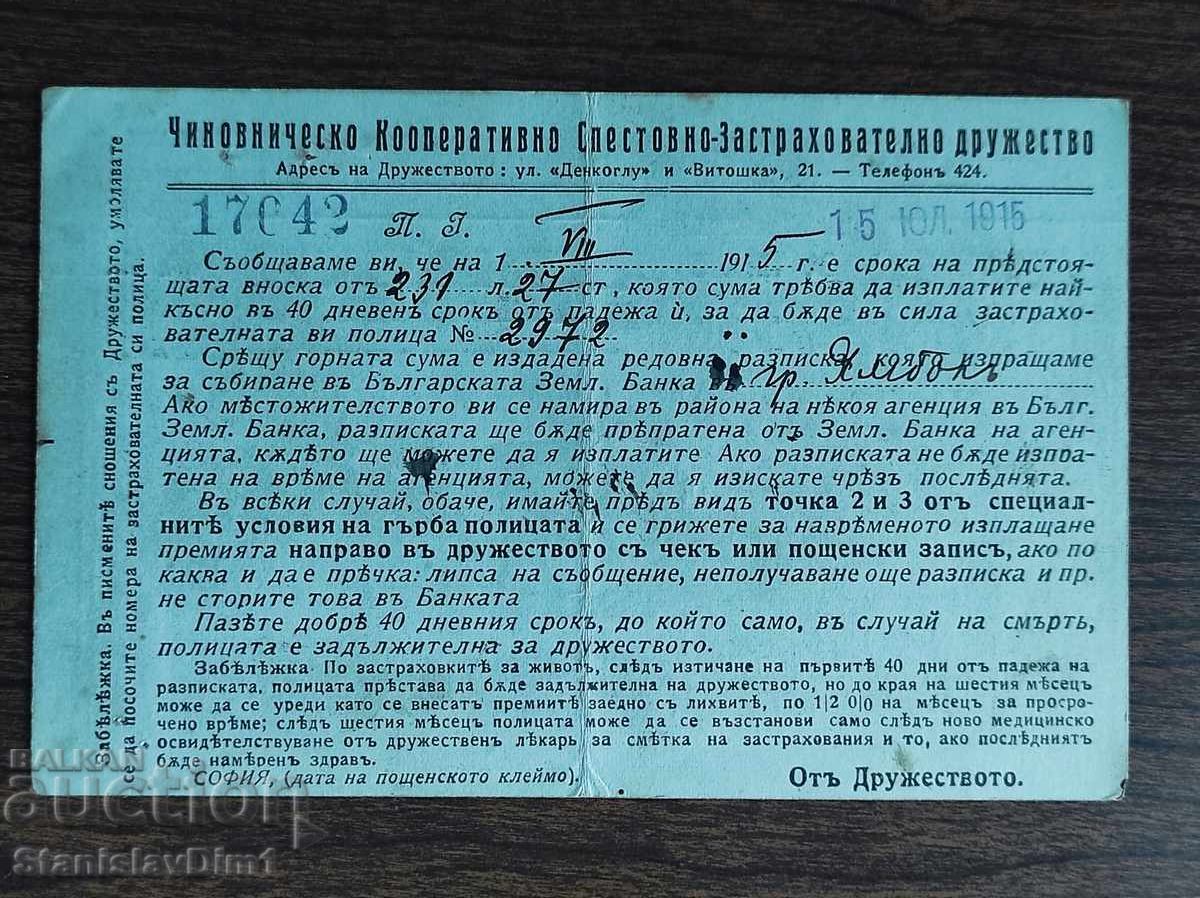 Чиновническо Кооперативно Спестовно-Застрахователно дружество
Адресъ на Дружеството: ул. «Денкоглу» и «Витошка», 21. — Телефонъ 424.
17042 П. Г. 15 ЮЛ. 1915
Съобщаваме ви, че на 1 VII 1915 г. е срока на прѣдстоя-
щата вноска отъ 231 л. 27 ст, която сума трѣбва да изплатите най-
късно въ 40 дневенъ срокъ отъ падежа ѝ, за да бѫде въ сила застрахо-
вателната ви полица № 2972
Срѣщу горната сума е издадена редовна разписка, която изпращаме
за събиране въ Българската Земл. Банка въ гр. Ямболъ
Ако мѣстожителството ви се намира въ района на нѣкоя агенция въ Бълг.
Земл. Банка, разписката ще бѫде прѣпратена отъ Земл. Банка на аген-
цията, кѫдѣто ще можете да я изплатите Ако разписката не бѫде изпра-
тена на врѣме на агенцията, можете да я изискате чрѣзъ послѣднята.
Въ всѣки случай, обаче, имайте прѣдъ видъ точка 2 и 3 отъ специал-
нитѣ условия на гърба полицата и се грижете за наврѣменото изплащане
премията направо въ дружеството съ чекъ или пощенски записъ, ако по
каква и да е прѣчка: липса на съобщение, неполучаване още разписка и пр.
не сторите това въ Банката
Пазѣте добрѣ 40 дневния срокъ, до който само, въ случай на смърть,
полицата е задължителна за дружеството.
Забѣлѣжка По застраховкитѣ за животъ, слѣдъ изтичане на първитѣ 40 дни отъ падежа на
разписката, полицата прѣстава да бѫде задължителна на дружеството, но до края на шестия мѣсецъ
може да се уреди като се внесатъ премиитѣ заедно съ лихвитѣ, по 1|2 0|0 на мѣсецъ за просро-
чено врѣме; слѣдъ шестия мѣсецъ полицата може да се възстанови само слѣдъ ново медицинско
освидѣтелствуване отъ дружественъ лѣкарь за смѣтка на застрахования и то, ако послѣдниятъ
бѫде намѣренъ здравъ.
СОФИЯ, (дата на пощенското клеймо). Отъ Дружеството.
Забѣлѣжка. Въ писменитѣ сношения съ Дружеството, умолявате
се да посочите номера на застрахователната си полица.
BALKAN
auction
StanislavDim1